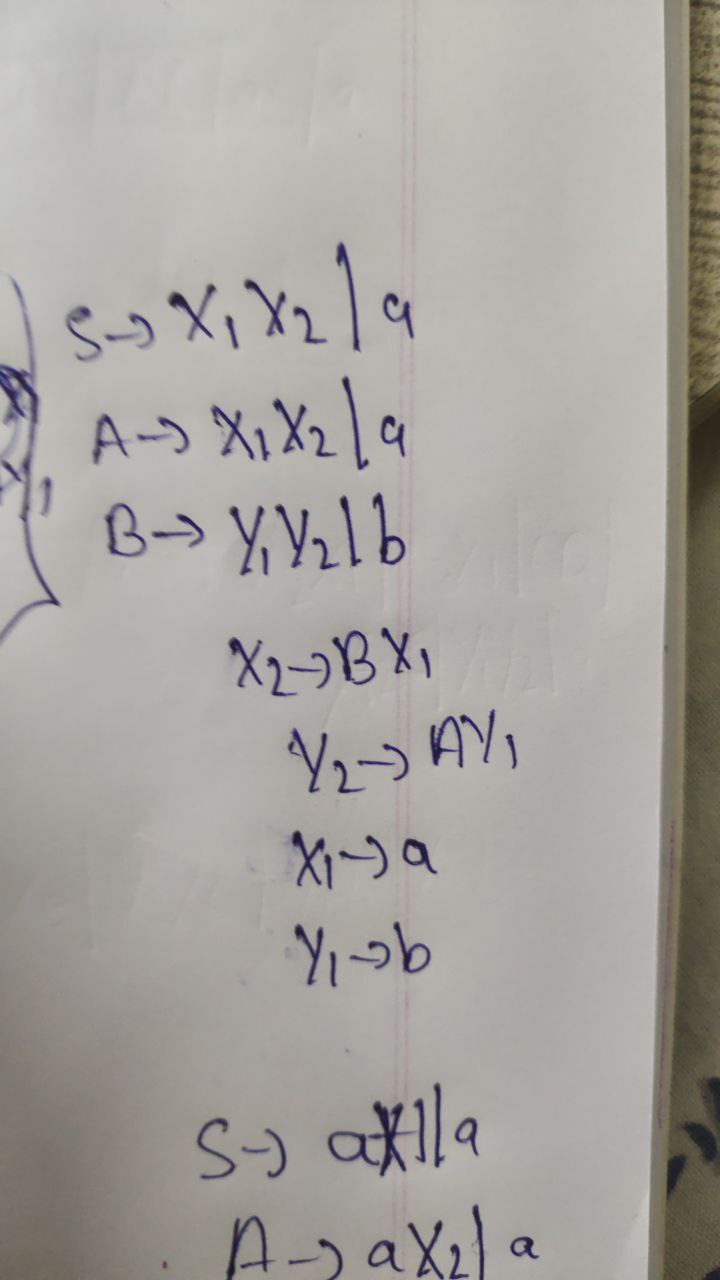 S→ X₁X₂|a
A→ X₁X₂|a
B→ Y₁Y₂|b
X₂→BX₁
Y₂→AY₁
X₁→a
Y₁→b
S→ a |a
A→aX₂|a